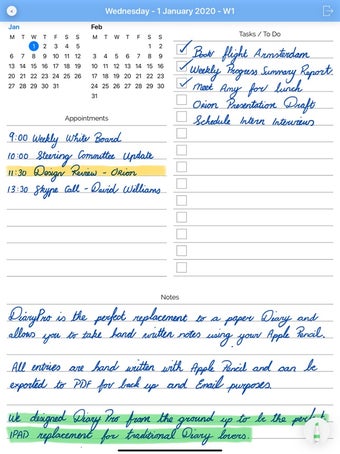 Wednesday - 1 January 2020 - W1
Jan
M T W T F S S
1 2 3 4 5
6 7 8 9 10 11 12
13 14 15 16 17 18 19
20 21 22 23 24 25 26
27 28 29 30 31
Feb
M T W T F S S
1 2
3 4 5 6 7 8 9
10 11 12 13 14 15 16
17 18 19 20 21 22 23
24 25 26 27 28 29 30
31
Tasks / To Do
Book flight Amsterdam
Weekly Progress Summary Report
Meet Amy for lunch
Orion Presentation Draft
Schedule Intern Interviews
Appointments
9:00 Weekly White Board
10:00 Steering Committee Update
11:30 Design Review - Orion
13:30 Skype Call - David Williams
Notes
DiaryPro is the perfect replacement to a paper Diary and
allows you to take hand written notes using your Apple Pencil.
All entries are hand written with Apple Pencil and can be
exported to PDF for back up and Email purposes
We designed Diary Pro from the ground up to be the perfect
IPAD replacement for traditional Diary lovers.